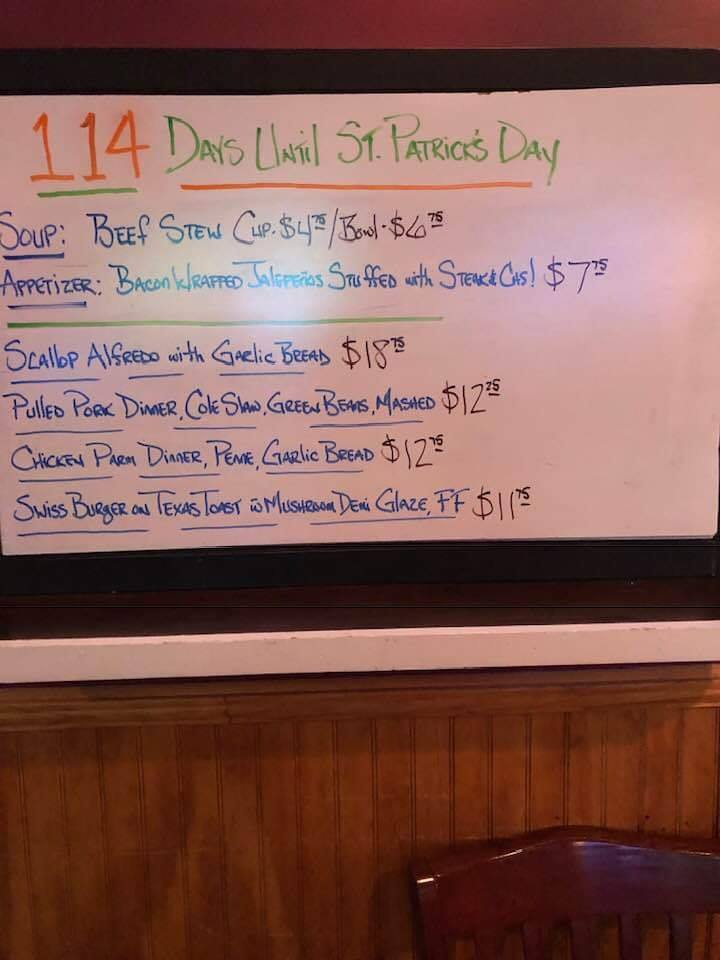 114 Days Until St. Patrick's Day
Soup: Beef Stew Cup-$4.75/Bowl-$6.75
Appetizer: Bacon Wrapped Jalepeños Stuffed with Steak & Chs! $7.75
Scallop Alfredo with Garlic Bread $18.75
Pulled Pork Dinner, Cole Slaw, Green Beans, Mashed $12.25
Chicken Parm Dinner, Penne, Garlic Bread $12.75
Swiss Burger on Texas Toast w Mushroom Demi Glaze, FF $11.75